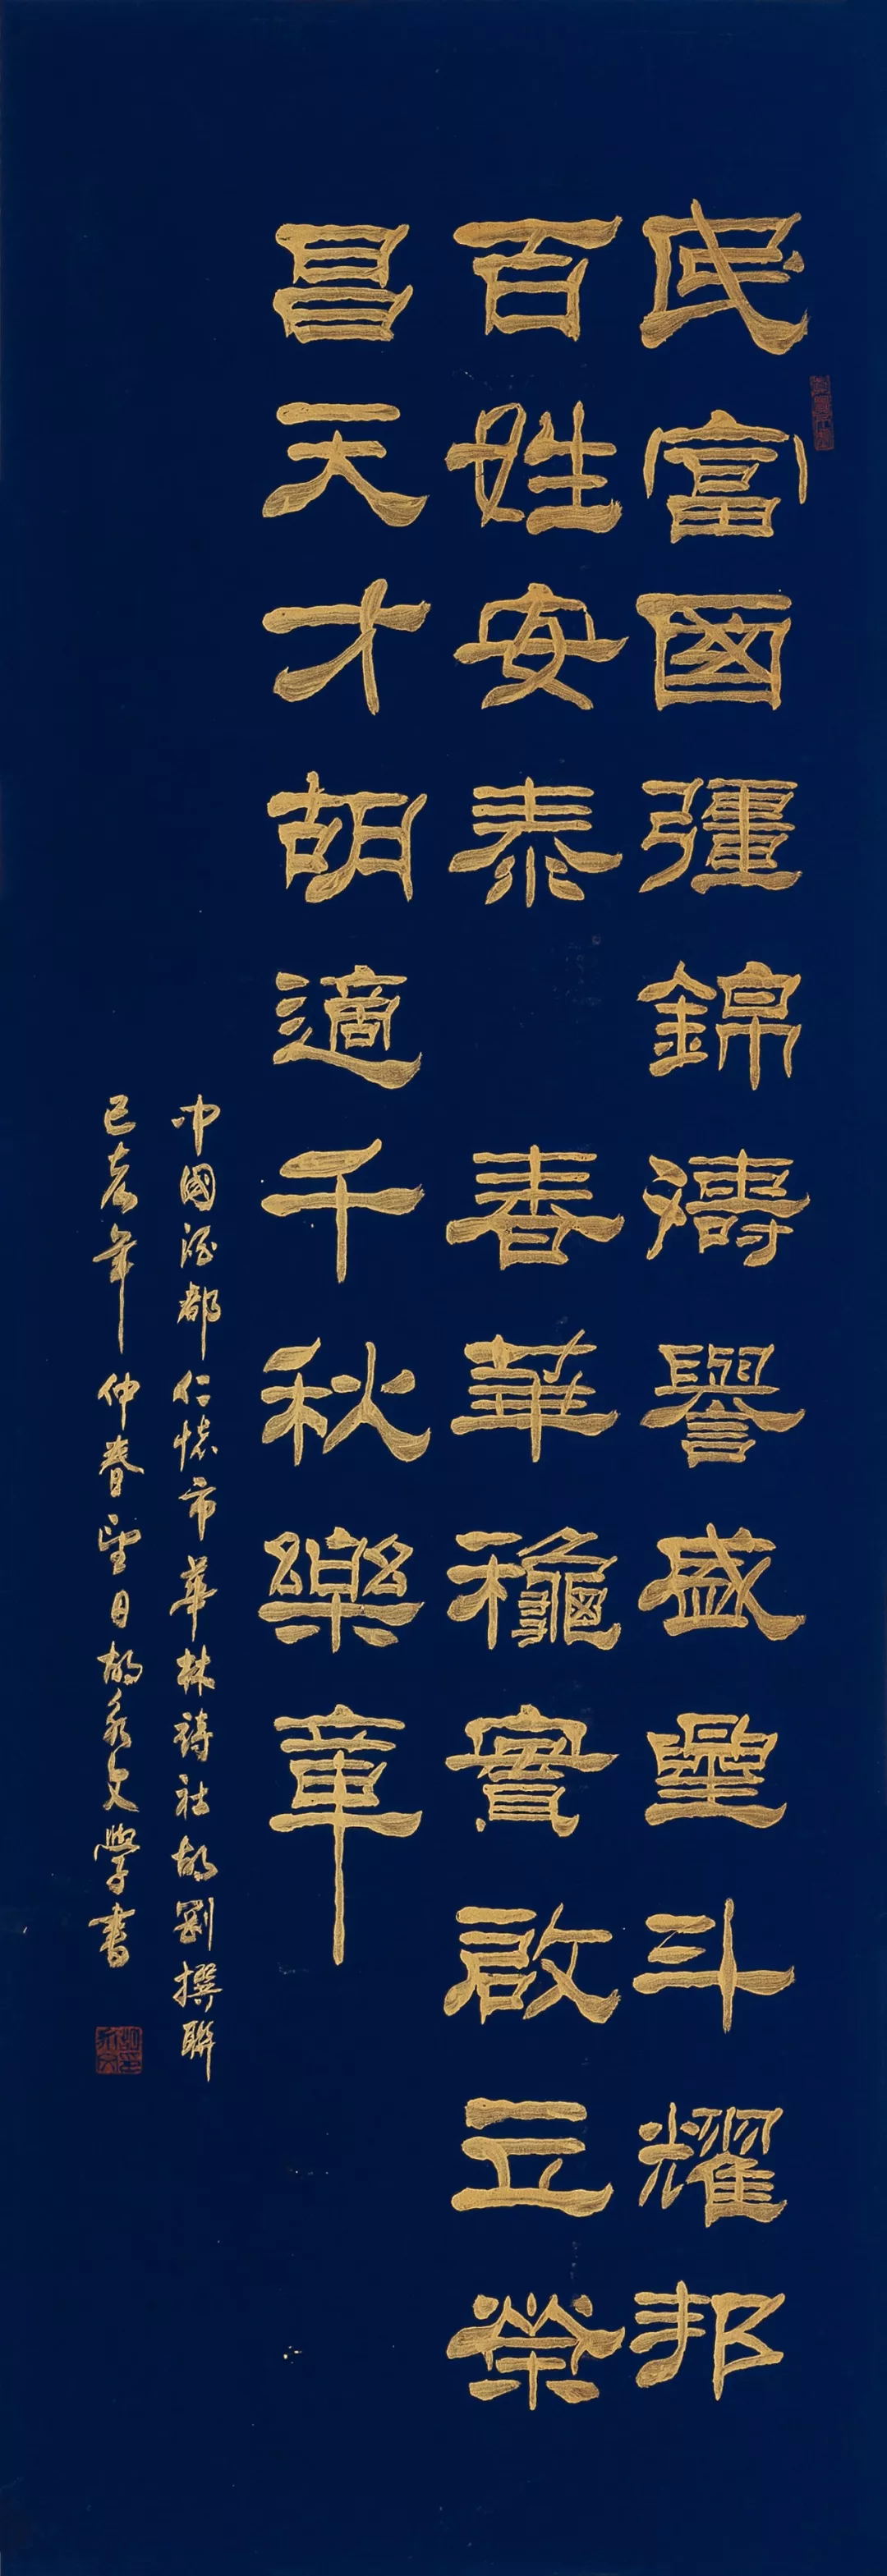 民富國彊錦濤譽盛斗耀邦
百姓安泰 春華穐實啟立榮
昌天才胡適千秋樂章
中國酒都仁懷市華林詩社胡剛撰聯
己亥年仲春望日胡永文學書